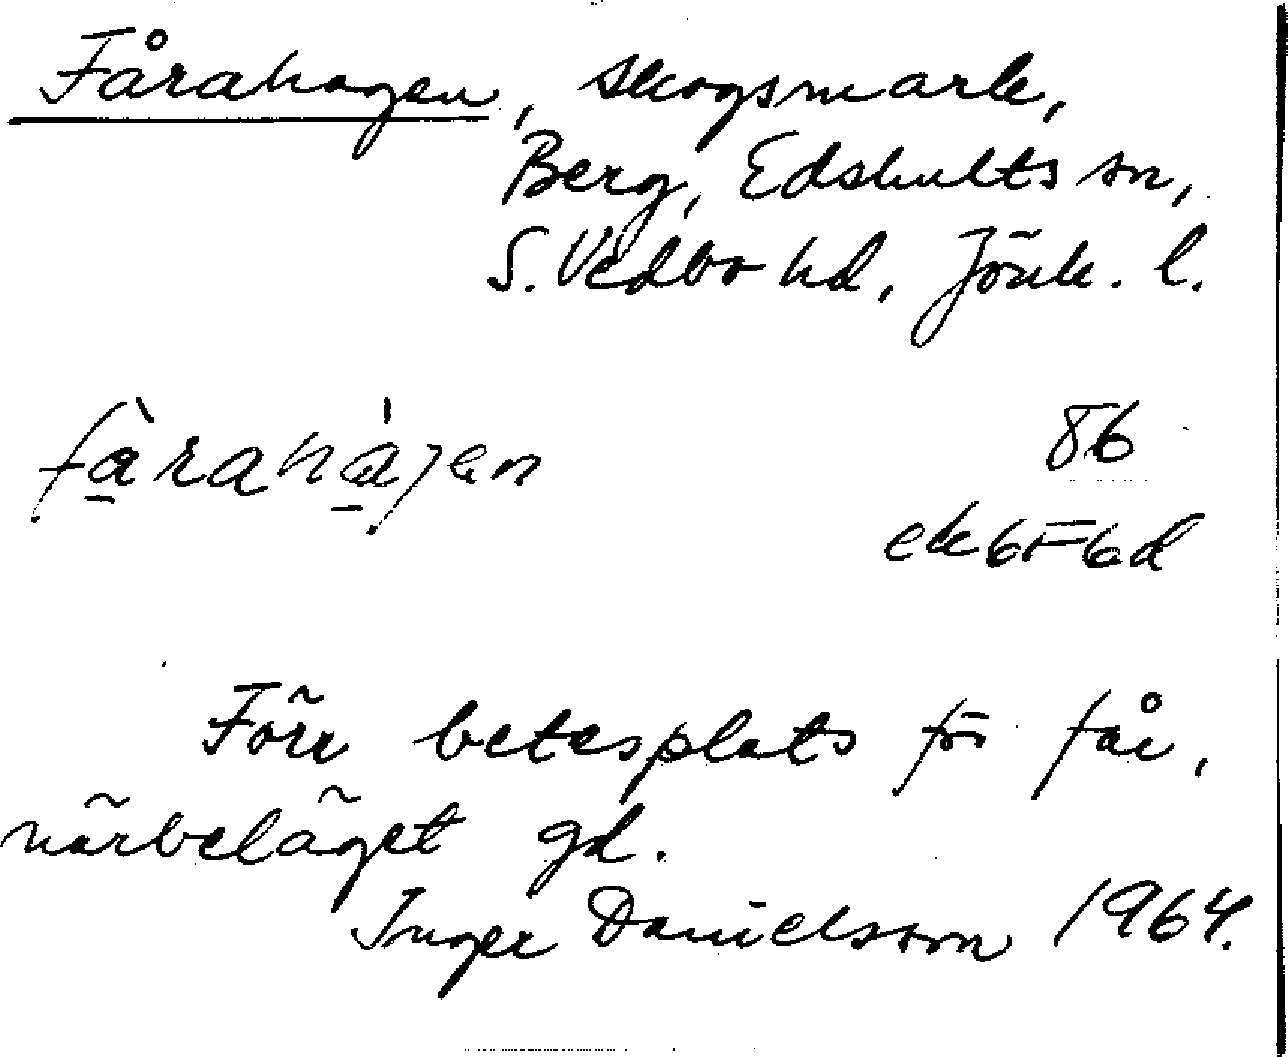 Fårahagen, skogsmark,
Berg, Edshults sn,
S. Vedbo hd, Jönk. l.
fàrahàgen
86
ek6F6d
Förr betesplats för får,
närbeläget gd.
Inger Danielsson 1964.